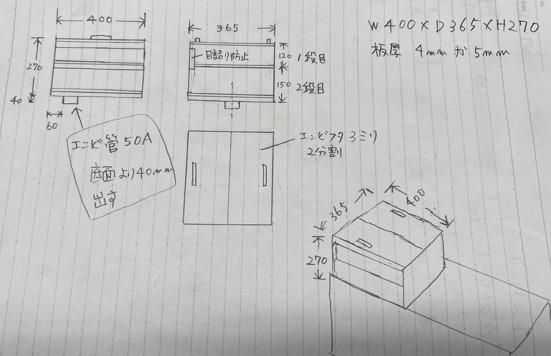 W400×D365×H270
板厚 4mm か 5mm
400
270
40
60
エンビ管 50A
底面より40mm
出す
365
目詰り防止
120
1段目
150
2段目
エンビフタ 3ミリ
2分割
365
400
270